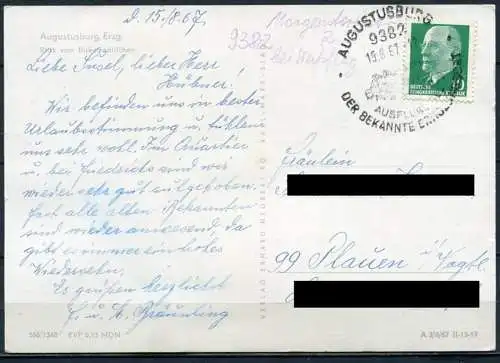 d. 15./8.67
Augustusburg, Erzg.
Blick vom
9382
Liebe Insel, lieber Herr
Hübner!
Wir befinden uns in bester
Urlaubsstimmung u. fühlen
uns sehr wohl. Im Quartier
u. bei Friedrichs sind wir
wieder sehr gut aufgehoben.
Fast alle alten Bekannten
sind wieder anwesend, da
gibt es immer ein frohes
Wiedersehn.
Es grüßen herzlichst
u. Bräunling
AUGUSTUSBURG
9382
15.8.67
AUSFLUG
DER BEKANNTE
DEUTSCHE
DEMOKRATISCHE REPUBLIK
Fräulein
99 Plauen i/Vogtl.
VERLAG ERHARD NEUBERT KG KARL-MARX-STADT
550/1360 EVP 0,15 MDN
A 2/6/67 II-13-19